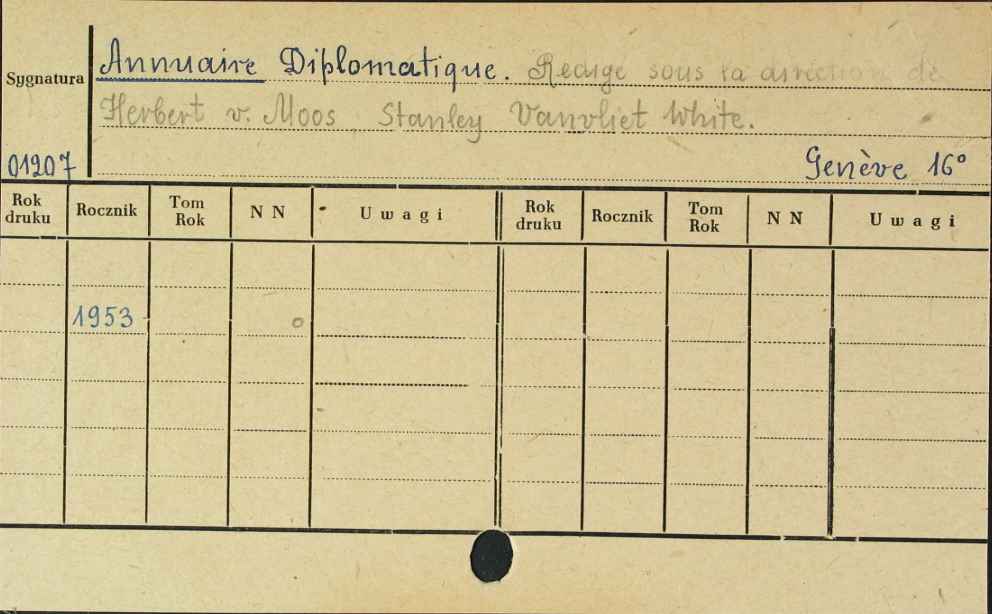 Sygnatura
Annuaire Diplomatique. Redigé sous la direction de
Herbert v. Moos, Stanley Vanvliet White.
01207
Genève 16°
Rok druku Rocznik Tom Rok N N Uwagi Rok druku Rocznik Tom Rok N N Uwagi
1953